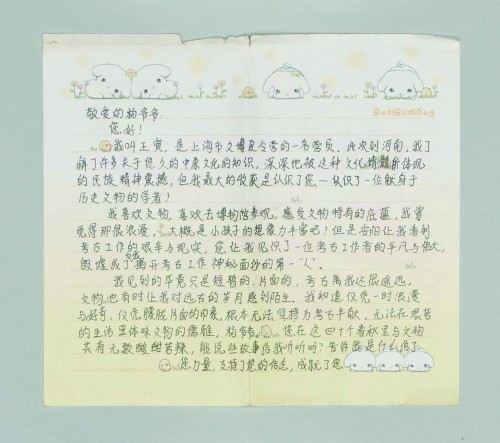 敬爱的杨爷爷,
您好!
我叫王寅,是上海市文博夏令营的一名营员。此次到河南,我了
解了许多关于悠久的中原文化的知识,深深地被这种文化精髓所体现
的民族精神震撼,但我最大的收获是认识了您——认识了一位献身于
历史文物的学者!
我喜欢文物,喜欢去博物馆参观,感受文物特有的底蕴,我曾
觉得那很浪漫,大概是小孩子的想象力丰富吧?但是安阳让我看到
考古工作的艰辛与现实,您让我见识了一位考古工作者的平凡与伟大,
您成了我揭开考古工作神秘面纱的第一"人"。
我见到的毕竟只是短暂的、片面的,考古离我还很遥远,
文物也有时让我对远古的岁月感到陌生。我知道仅凭一时浪漫
与好奇,仅凭朦胧片面的印象,根本无法坚持为考古奉献,无法在艰苦
的生活里体味文物的儒雅。杨爷爷,您在这四十个春秋里与文物
共有无数酸甜苦辣,能说些故事给我听听吗?告诉我是什么给了
您力量,支持了您的信念,成就了您
BudiBudiDog